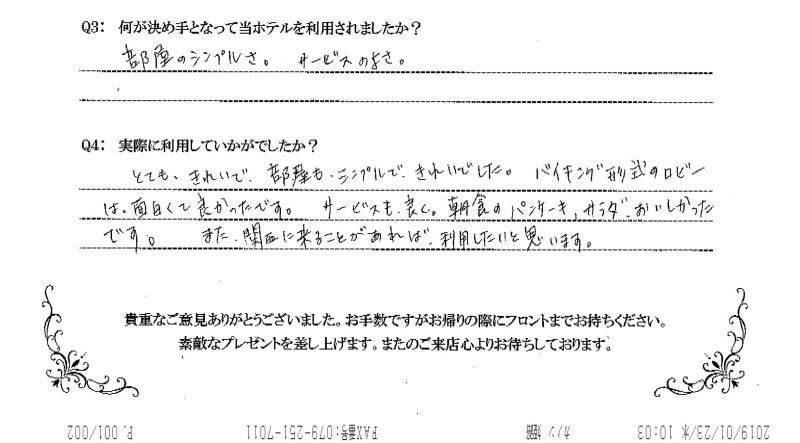 Q3: 何が決め手となって当ホテルを利用されましたか？
部屋のシンプルさ。 サービスのよさ。
Q4: 実際に利用していかがでしたか？
とても、きれいで、部屋も、シンプルで、きれいでした。 バイキング形式のロビー
は、面白くて良かったです。 サービスも、良く。朝食のパンケーキ、サラダ、おいしかった
です。 また、関西に来ることがあれば、利用したいと思います。
貴重なご意見ありがとうございました。お手数ですがお帰りの際にフロントまでお持ちください。
素敵なプレゼントを差し上げます。またのご来店心よりお待ちしております。
2019/01/23/水 10:03 カノン FAX番号:079-251-7011 P. 001/002